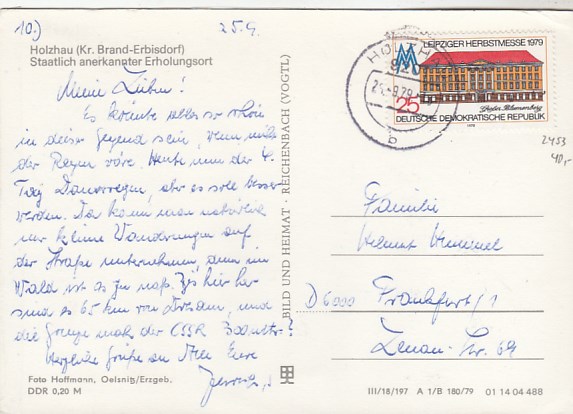 10.) 25.9.
Holzhau (Kr. Brand-Erbisdorf)
Staatlich anerkannter Erholungsort
Meine Lieben!
Es könnte alles so schön
in dieser Gegend sein, wenn nicht
der Regen wäre. Heute nun der 4.
Tag Dauerregen, aber es soll besser
werden. Da kann man natürlich
nur kleine Wanderungen auf
der Straße unternehmen, denn im
Wald ist es zu naß. Bis hier her
sind es 65 km von Dresden, und
die Grenze nach der ČSSR
Herzliche Grüße an Alle Eure
Foto Hoffmann, Oelsnitz/Erzgeb.
DDR 0,20 M
BILD UND HEIMAT · REICHENBACH (VOGTL)
LEIPZIGER HERBSTMESSE 1979
25
DEUTSCHE DEMOKRATISCHE REPUBLIK
2453
40,-
Familie
Helmut Hummel
D 6000 Frankfurt/1
Lenau-Str. 69
III/18/197 A 1/B 180/79 01 14 04 488